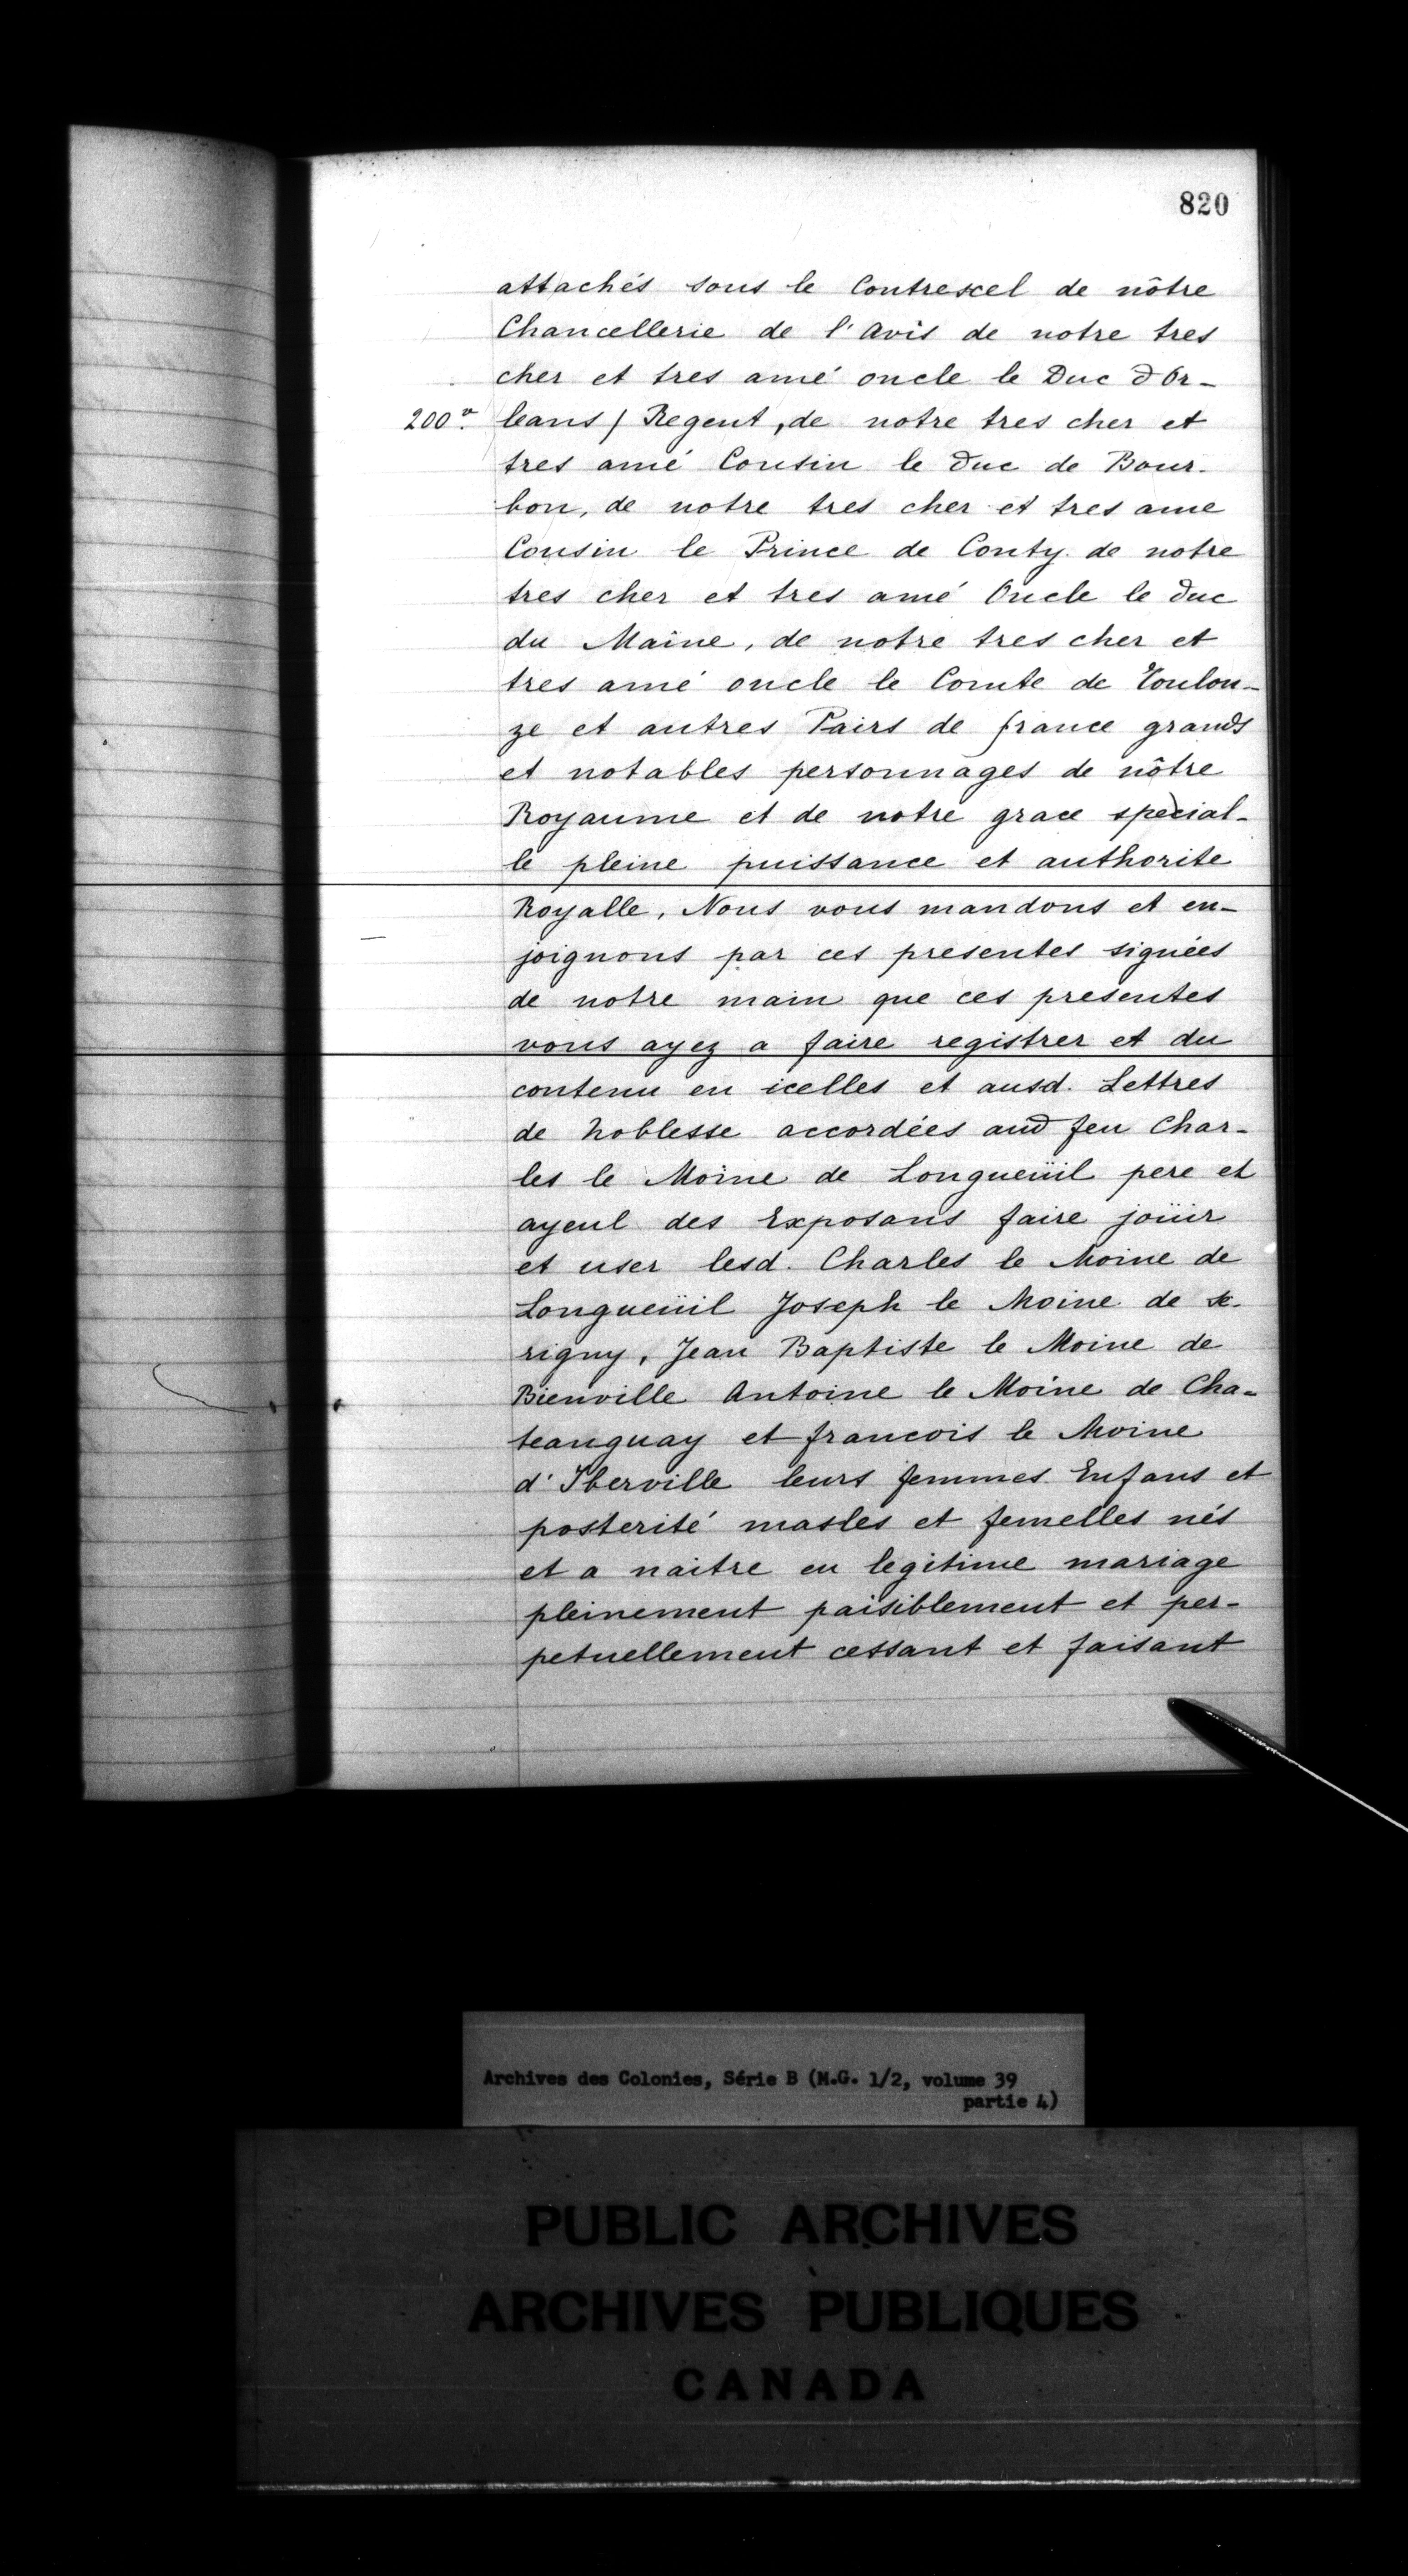 820
attachés sous le Contrescel de nôtre
Chancellerie de l'Avis de notre tres
cher et tres amé oncle le Duc d'Or-
200 v. leans / Regent, de notre tres cher et
tres amé Cousin le Duc de Bour-
bon, de notre tres cher et tres ame
Cousin le Prince de Conty. de notre
tres cher et tres amé Oncle le Duc
du Maine, de notre tres cher et
tres amé oncle le Comte de Toulou-
ze et autres Pairs de france grands
et notables personnages de nôtre
Royaume et de notre grace special-
le pleine puissance et authorite
Royalle, Nous vous mandons et en-
joignons par ces presentes signées
de notre main que ces presentes
vous ayez a faire registrer et du
contenu en icelles et ausd. Lettres
de Noblesse accordées aud feu Char-
les le Moine de Longueüil pere et
ayeul des Exposans faire joüir
et user lesd. Charles le Moine de
Longueüil Joseph le Moine de Se-
rigny, Jean Baptiste le Moine de
Bienville Antoine le Moine de Cha-
teauguay et francois le Moine
d'Iberville leurs femmes Enfans et
posterité masles et femelles nés
et a naitre en legitime mariage
pleinement paisiblement et per-
petuellement cessant et faisant
Archives des Colonies, Série B (M.G. 1/2, volume 39
partie 4)
PUBLIC ARCHIVES
ARCHIVES PUBLIQUES
CANADA